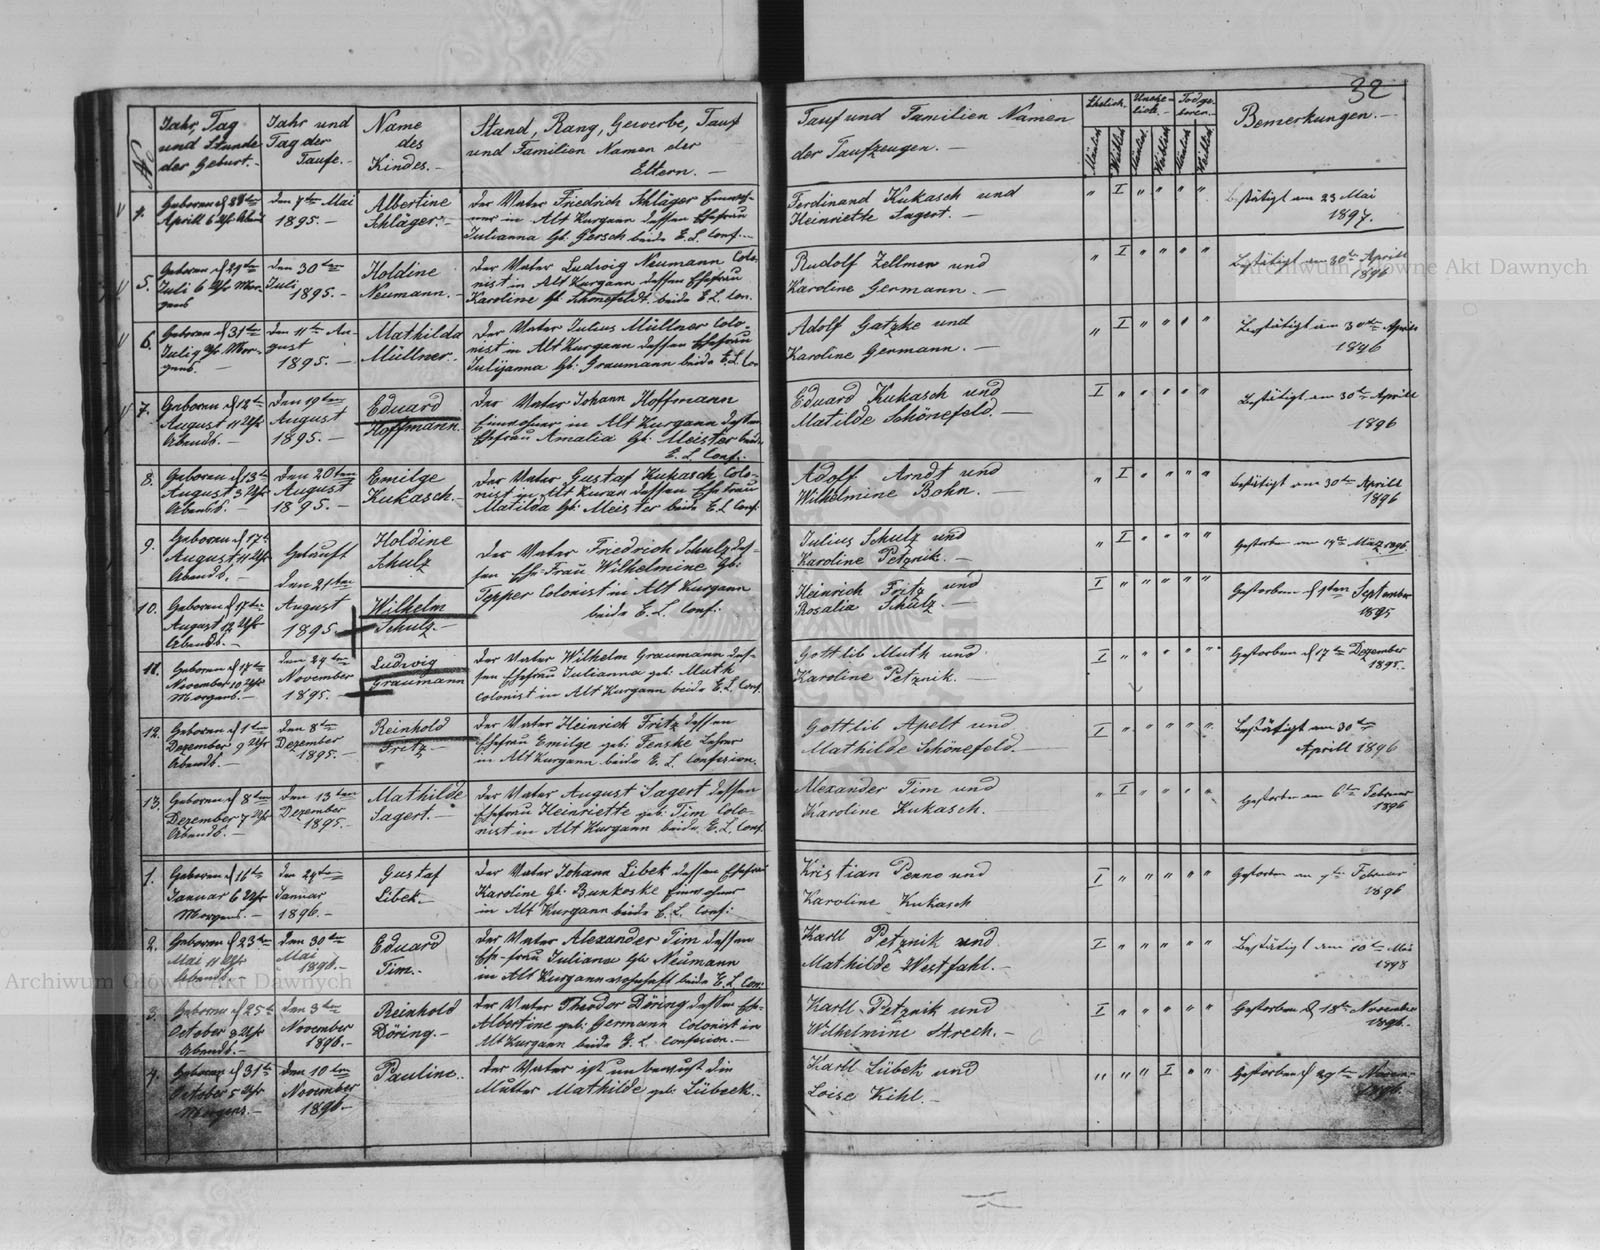 32
No
Jahr, Tag
und Stunde
der Geburt.
Jahr und
Tag der
Taufe.
Name
des
Kindes.
Stand, Rang, Gewerbe, Tauf
und Familien Namen der
Eltern.
Tauf und Familien Namen
der Taufzeugen.
Ehelich.
Unehe-
lich.
Todge-
boren.
Bemerkungen.
Mänlich
Weiblich
Mänlich
Weiblich
Mänlich
Weiblich
4.
Geboren d 28ten
Aprill 6 Uhr Abend
den 7ten Mai
1895.
Albertine
Schläger.
der Vater Friedrich Schläger Einwoh-
ner in Alt Kurgann dessen Ehefrau
Julianna gb. Gersch beide E. L. Conf.
Ferdinand Kukasch und
Heinriette Sagert.
" I " " " "
bestätigt am 23 Mai
1897.
5.
Geboren d 29ten
Juli 6 Uhr Mor-
gens
den 30ten
Juli
1895.
Holdine
Neumann.
der Vater Ludwig Neumann Colo-
nist in Alt Kurgann dessen Ehefrau
Karoline gb. Schönefeldt beide E. L. Con.
Rudolf Zellmer und
Karoline Germann.
" I " " " "
bestätigt am 30ten Aprill
1896
6.
Geboren d 31ten
Juli 9 Uhr Mor-
gens.
den 11ten Au-
gust
1895.
Mathilda
Müllner.
der Vater Julius Müllner Colo-
nist in Alt Kurgann dessen Ehefrau
Julijanna gb. Graumann beide E. L. Co
Adolf Gatzke und
Karoline Germann.
" I " " " "
Bestätigt am 30ten Aprill
1896
7.
Geboren d 12ten
August 11 Uhr
Abends.
Den 19ten
August
1895.
Eduard
Hoffmann.
Der Vater Johann Hoffmann
Einwohner in Alt Kurgann dessen
Ehefrau Amalia gb. Meister beide
E. L. Conf:
Eduard Kukasch und
Matilde Schönefeld.
I " " " " "
bestätigt am 30ten Aprill
1896
8.
Geboren d 13ten
August, 3 Uhr
Abends.
den 20ten
August
1895.
Emilge
Kukasch.
der Vater Gustaf Kukasch Colo-
nist in Alt Kuran dessen Ehefrau
Matilda gb. Meister beide E. L. Conf:
Adolf Arndt und
Wilhelmine Bohn.
" I " " " "
bestätigt am 30ten Aprill
1896
9.
Geboren d 17ten
August, 11 Uhr
Abends.
Getäuft
den 21ten
August
1895
Holdine
Schulz
der Vater Friedrich Schulz des-
sen Ehe-Frau Wilhelmine gb:
Tepper Colonist in Alt Kurgann
beide E. L. Conf:
Julius Schulz und
Karoline Petznik.
" I " " " "
Gestorben am 19ten März 1896.
10.
Geboren d 17ten
August 12 Uhr
Abends.
Wilhelm
Schulz.
Heinrich Fritz und
Rosalia Schulz.
I " " " " "
Gestorben d 1ten September
1895
11.
Geboren d 18ten
November 10 Uhr
Morgens.
den 29ten
November
1895.
Ludwig
Graumann
der Vater Wilhelm Graumann des-
sen Ehefrau Julianna geb: Muth
Colonist in Alt Kurgann beide E. L. Conf.
Gottlib Muth und
Karoline Petznik.
I " " " " "
Gestorben d 17ten Dezember
1895.
12.
Geboren d 1ten
Dezember 9 Uhr
Abends.
den 8ten
Dezember
1895.
Reinhold
Fritz
der Vater Heinrich Fritz dessen
Ehefrau Emilge geb: Fenske Lehrer
in Alt Kurgann beide E. L. Confesion.
Gottlib Apelt und
Mathilde Schönefeld.
I " " " " "
Bestätigt am 30ten
Aprill 1896
13.
Geboren d 8ten
Dezember 7 Uhr
Abends.
den 13ten
Dezember
1895.
Mathilde
Sagert.
der Vater August Sagert dessen
Ehefrau Heinriette geb: Tim Colo-
nist in Alt Kurgann beide E. L. Conf.
Alexander Tim und
Karoline Kukasch.
" I " " " "
Gestorben am 6ten Februar
1896
1.
Geboren d 11ten
Januar 6 Uhr
Morgens.
den 29ten
Januar
1896.
Gustaf
Libek.
der Vater Johann Libek dessen Ehefrau
Karoline gb. Bunkoske Einwohner
in Alt Kurgann beide E. L. Conf:
Kristian Penno und
Karoline Kukasch
I " " " " "
Gestorben am Februar
1896
2.
Geboren d 23ten
Mai 11 Uhr
Abends.
den 30ten
Mai
1896.
Eduard
Tim.
der Vater Alexander Tim dessen
Ehe-frau Juliana gb. Neumann
in Alt Kurgann wohnhaft beide E. L. Con:
Karll Petznik und
Mathilde Westfahl.
I " " " " "
Bestätigt am 10ten Mai
1898
3.
Geborne d 25ten
October 9 Uhr
Abends.
den 3ten
November
1896.
Reinhold
Döring.
der Vater Theodor Döring dessen Eh-
Albertine geb: Germann Colonist in
Alt Kurgann beide E. L. Confesion.
Karll Petznik und
Wilhelmine Strech.
I " " " " "
Gestorben d 18ten November
1896.
4.
Geboren d 31ten
October 5 Uhr
Morgens.
den 10ten
November
1896
Pauline.
der Vater ist unbewust die
Mutter Mathilde geb: Lübeck.
Karll Lübek und
Loise Kihl.
" " " I " "
Gestorben d 29ten Novem-
1896.
Archiwum Główne Akt Dawnych
Archiwum Główne Akt Dawnych